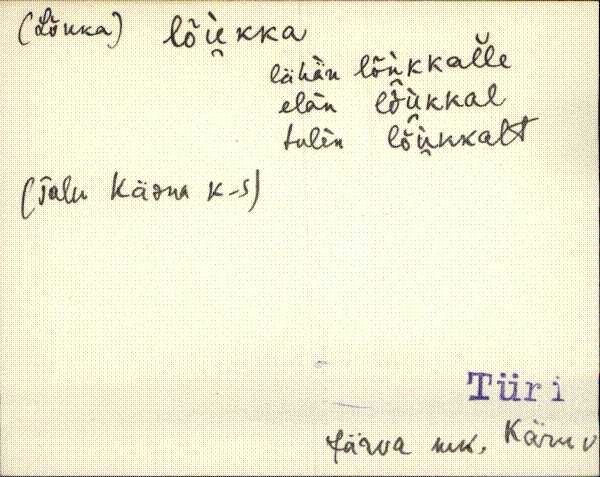 (Lõuka) lõù̯kka
lähän lõù̯kkalle
elàn lõù̯kkal
tulèn lõù̯kkalt
(Talu Käsna k-s)
Türi
Järva mk. Käru v